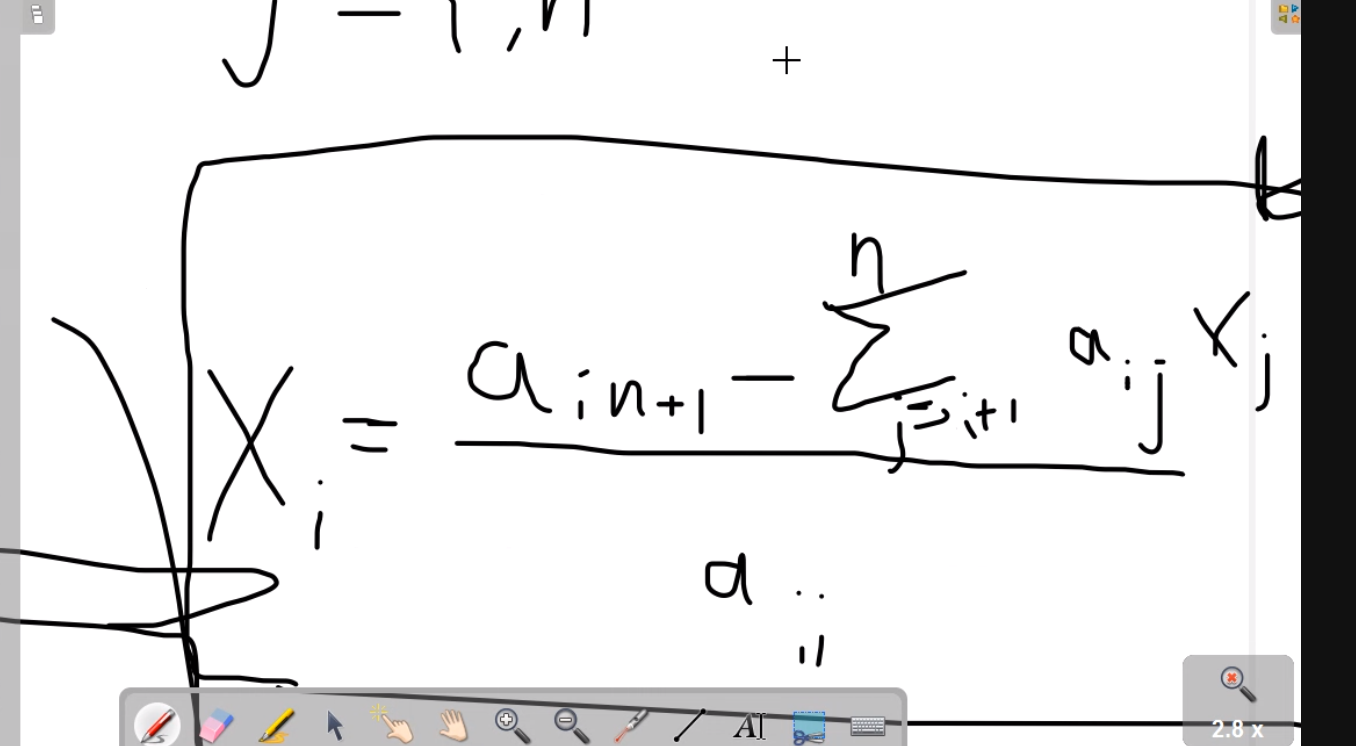 j = 1, n
X_i = \frac{a_{in+1} - \sum_{j=i+1}^{n} a_{ij} x_j}{a_{ii}}
AI
2.8 x